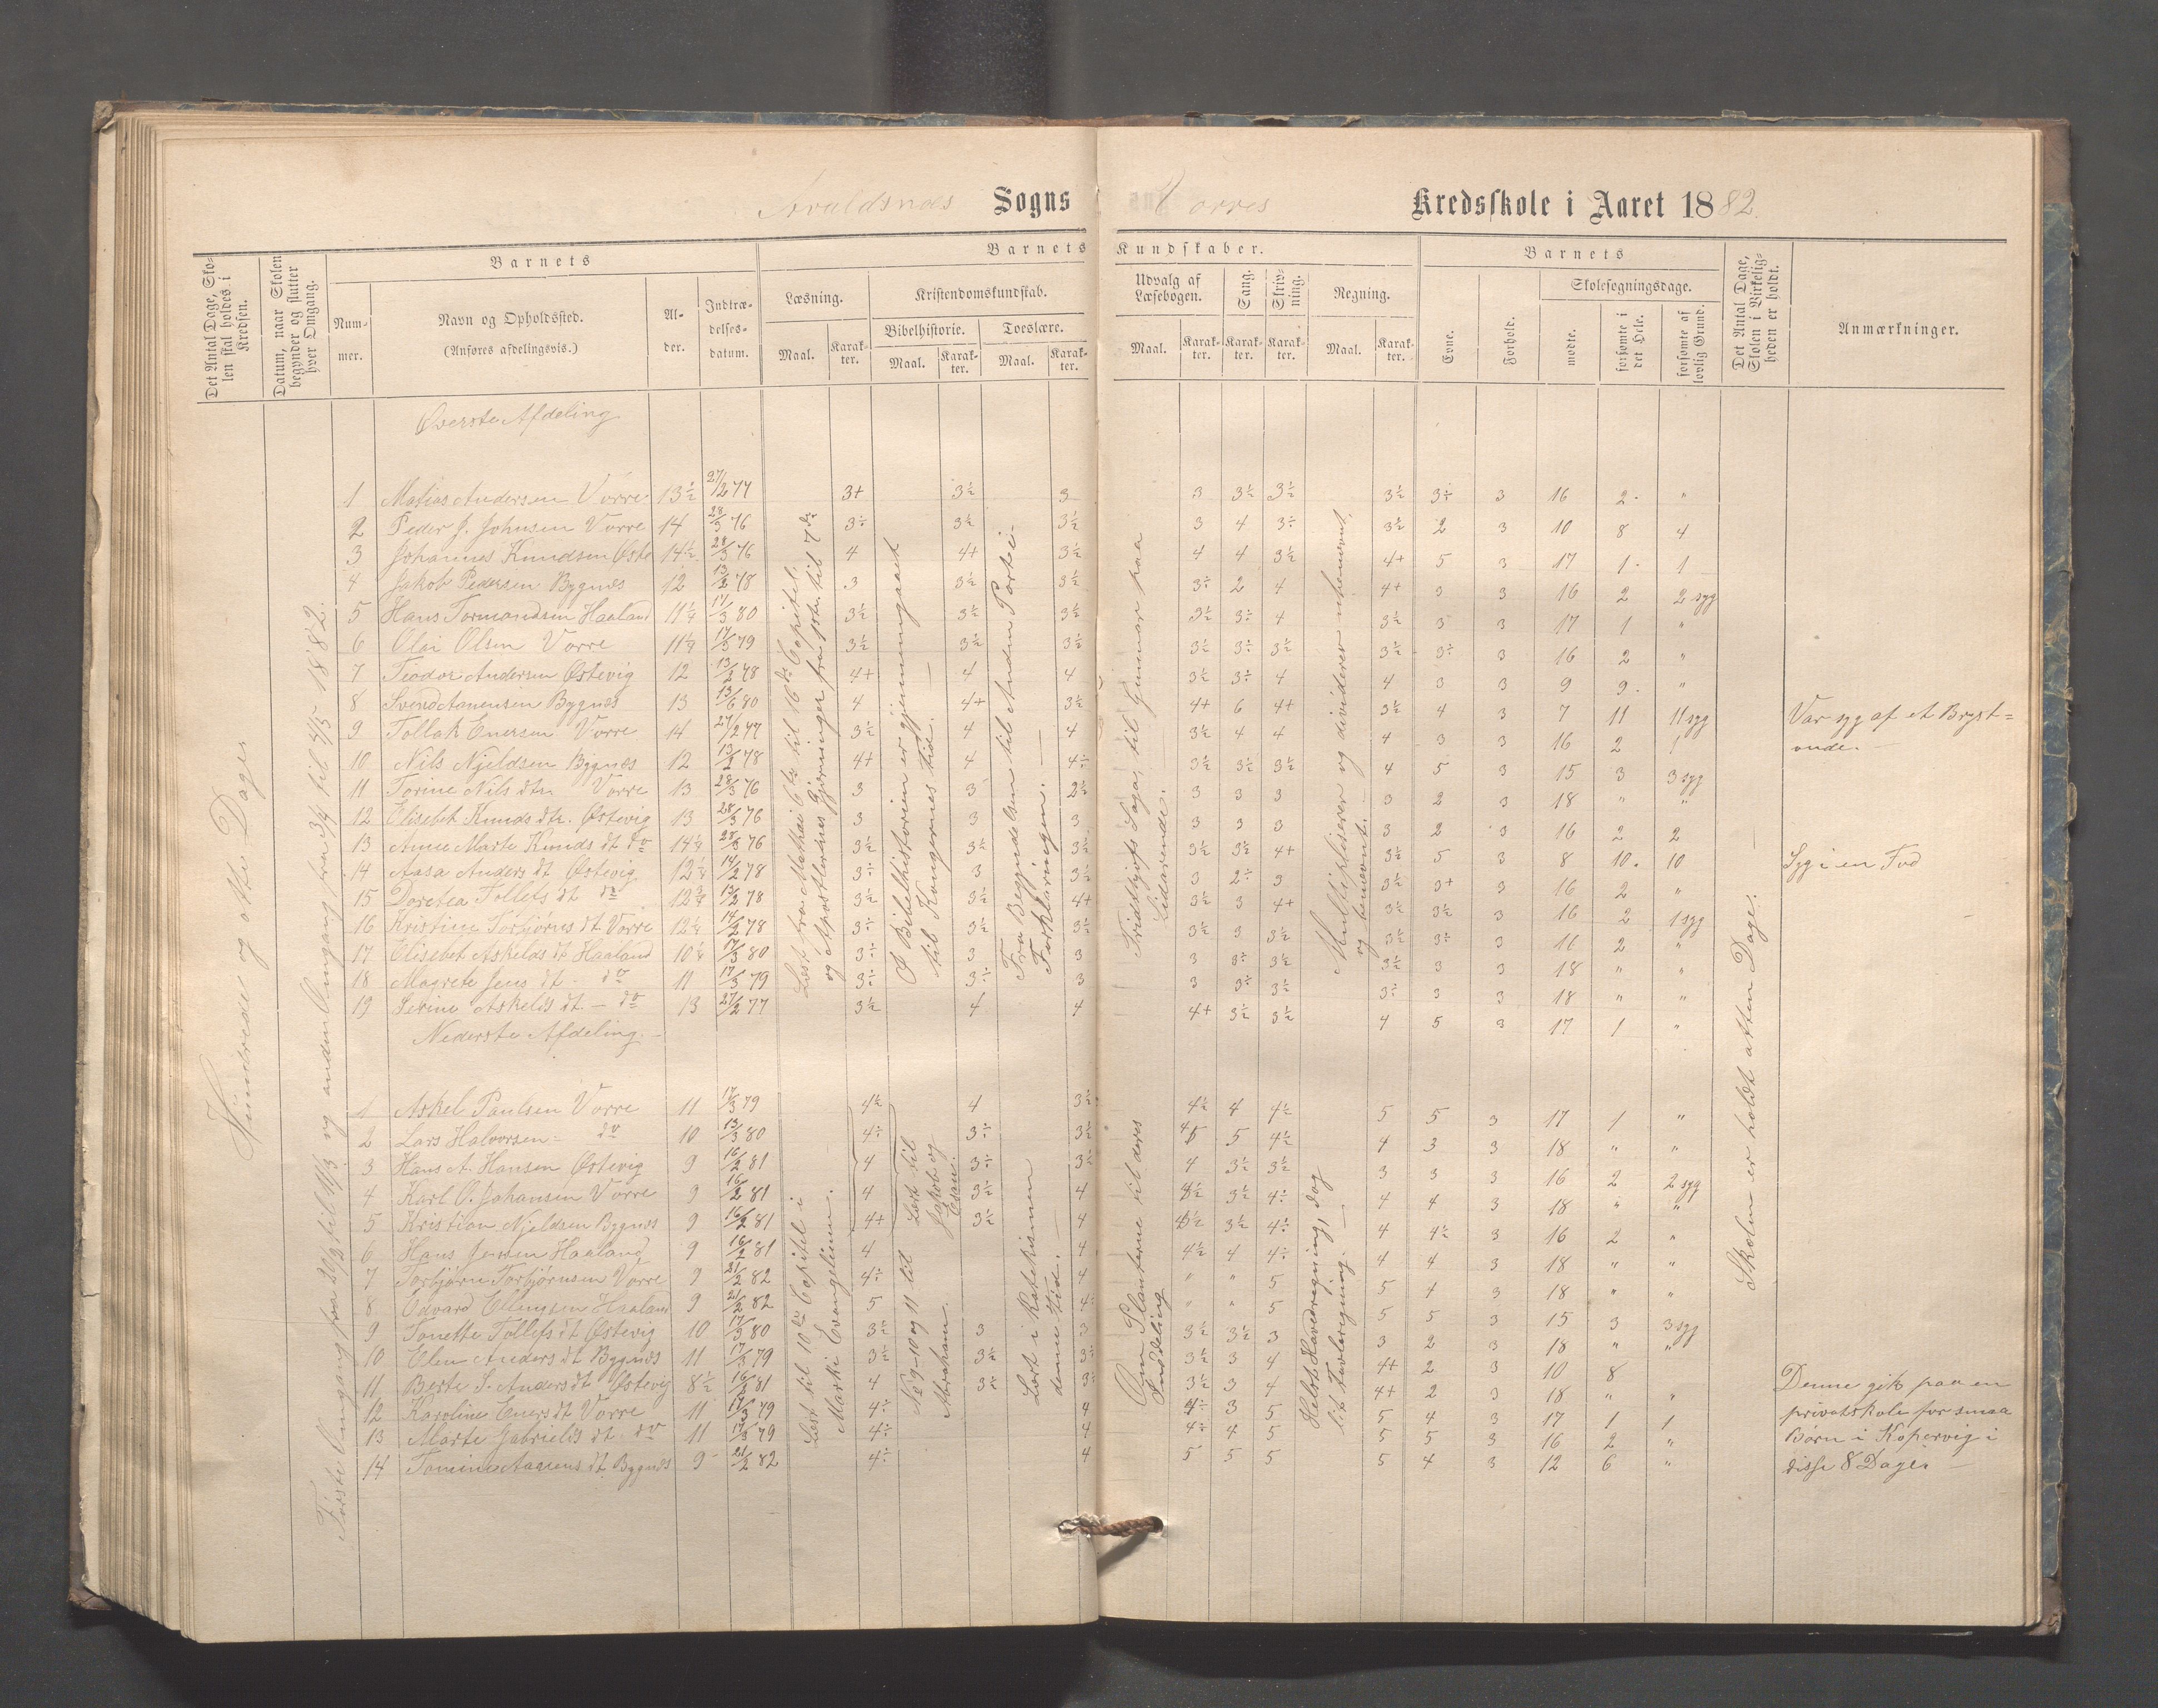 Avaldsnæs Sogns
Vorres Kredsskole i Aaret 1882.
Det Antal Dage, Skolen skal holdes i Kredsen.
Datum, naar Skolen begynder og slutter hver Omgang.
Barnets
Barnets Kundskaber.
Barnets
Det Antal Dage, Skolen i Virkeligheden er holdt.
Anmærkninger.
Nummer.
Navn og Opholdssted.
(Anføres afdelingsvis.)
Alder.
Indtrædelsesdatum.
Læsning.
Kristendomskundskab.
Bibelhistorie.
Troeslære.
Maal.
Karakter.
Maal.
Karakter.
Maal.
Karakter.
Udvalg af Læsebogen.
Sang.
Skrivning.
Regning.
Maal.
Karakter.
Karakter.
Karakter.
Maal.
Karakter.
Evne.
Forhold.
Skolesøgningsdage.
mødte.
forsømte i det Hele.
forsømte af lovlig Grund.
Hundrede og otte Dage
Første Omgang fra 20/2 til 11/3 og anden Omgang fra 3/4 til 4/5 1882.
Øverste Afdeling
1 Matias Andersen Vorre 13½ 27/2 77 3+ 3½ 3 3 3½ 3½ 3½ 3÷ 3 16 2 "
2 Peder J. Johnsen Vorre 14 28/3 76 3÷ 3½ 3½ 3 4 3÷ 3½ 2 3 10 8 4
3 Johannes Knudsen Øste 14½ 28/3 76 4 4+ 3½ 4 4 3½ 4+ 5 3 17 1 1
4 Jakob Pedersen Bygnæs 12 13/2 78 3 3½ 3½ 3÷ 2 4 4+ 3 3 16 2 2 syg
5 Hans Tormandsen Haaland 11¼ 17/3 80 3½ 3½ 3½ 3½ 3÷ 4 3½ 3 3 17 1 "
6 Olai Olsen Vorre 11¼ 17/3 79 3½ 3½ 3½ 3½ 3÷ 3½ 3½ 3÷ 3 16 2 "
7 Teodor Andersen Østevig 12 13/2 78 4+ 4 4 3½ 3÷ 4 4 3 3 9 9 "
8 Svend Aanensen Bygnæs 13 13/6 80 4 4+ 3½ 4+ 6 4+ 3½ 4 3 7 11 11 syg Var syg af et Brystonde.
9 Tollak Enersen Vorre 14 27/2 77 3½ 4 4 3½ 4 4 4 3 3 16 2
10 Nils Njeldsen Bygnæs 12 13/2 78 4+ 4 4÷ 3½ 3½ 3½ 4 5 3 15 3 3 syg
11 Torine Nils dtr. Vorre 13 28/3 76 3 3 2½ 3 3 3 3 2 3 18 " "
12 Elisebet Knuds dtr. Østevig 13 28/3 76 3 3 3 3 3 3 3 2 3 16 2 2
13 Anne Marte Knuds dt do 14¼ 28/3 76 3½ 3½ 3½ 3½ 3½ 4+ 3½ 5 3 8 10 10 Syg i en Fod
14 Aasa Anders dt Østevig 12¼ 14/2 78 3÷ 3 3½ 3 2÷ 3 3½ 3+ 3 16 2 "
15 Doretea Tollefs dt do 12¾ 13/2 78 3½ 3½ 4+ 3½ 3 4+ 3½ 3½ 3 16 2 1 syg
16 Kristine Torbjørns dt Vorre 12¼ 14/2 78 3÷ 3½ 3½ 3½ 3 3½ 3½ 3÷ 3 16 2 "
17 Elisebet Askelds dt Haaland 10¼ 17/3 80 3÷ 3 3 3 3÷ 3½ 3½ 3 3 18 " "
18 Magrete Jens dt do 11 17/3 79 3÷ 3÷ 3 3 3÷ 3½ 3÷ 3 3 18 " "
19 Serine Askelds dt do 13 27/2 77 3½ 4 4 4+ 3½ 3½ 4 5 3 17 1 "
Læst fra Mathæi 6te til 16de Capitel, og Apostlernes Gjerninger fra 1ste til 7de
Af Bibelhistorien er gjennemgaaet til Kongernes tid.
Fra Begyndelsen til Anden Part i Forklaringen.
Fridthjofs Saga, til Gunnar paa Lidarende.
Multipliserer og dividerer ubenævnt og benævnt.
Skolen er holdt atten Dage.
Nederste Afdeling
1 Askel Paulsen Vorre 11 17/3 79 4½ 4 3½ 4½ 4 4½ 5 5 3 17 1 "
2 Lars Halvorsen do 10 13/3 80 4÷ 3÷ 3½ 5 4½ 4 3 3 18 " "
3 Hans A. Hansen Østevig 9 16/2 81 4 3÷ 3½ 4 3½ 3½ 3 3 3 16 2 2 syg
4 Karl O. Johansen Vorre 9 16/2 81 4 3½ 4 3½ 4÷ 4 4 3 18 " "
5 Kristian Njeldsen Bygnæs 9 16/2 81 4+ 3½ 4 3½ 4÷ 4 4½ 3 16 2 "
6 Hans Jensen Haaland 9 16/2 81 4 4 4½ 4 4÷ 4 4 3 18 " "
7 Torbjørn Torbjørnsen Vorre 9 21/2 82 4÷ 4 " " 5 5 4 3 18 " "
8 Edvard Ellingsen Haaland 9 21/2 82 5 4÷ " " 5 5 5 3 15 3 3 syg
9 Tonette Tollefs dt Østevig 10 17/3 80 3½ 3 3 3½ 3½ 3 3 2 3 18 " "
10 Elen Anders dt Bygnæs 11 17/3 79 3½ 3½ 3÷ 3½ 3 4 4+ 2 3 10 8
11 Berte S. Anders dt Østevig 8½ 16/2 81 4 3÷ 3÷ 3½ 3 4 4+ 2 3 18 " "
12 Karoline Eners dt Vorre 11 17/3 79 4÷ 4 4÷ 3 5 5 4 3 17 1 1
13 Marte Gabriels dt do 11 17/3 79 4÷ 4 4÷ 4 5 5 5 3 16 2 "
14 Tomine Aanens dt Bygnæs 9 21/2 82 4÷ 4 5 5 5 5 4 3 12 6 "
Læst til 10de Capitel i Marki Evangelium.
Læst til Jakob og Esau.
No 9-10 og 11 til Abraham
Læst i Katekismen denne tid.
Om Planterne til deres Inddeling
Helst Hovedregning, dog lit Tavleregning.
Denne gik paa en
privatskole for smaa
Børn i Kopervig i
disse 8 Dage.